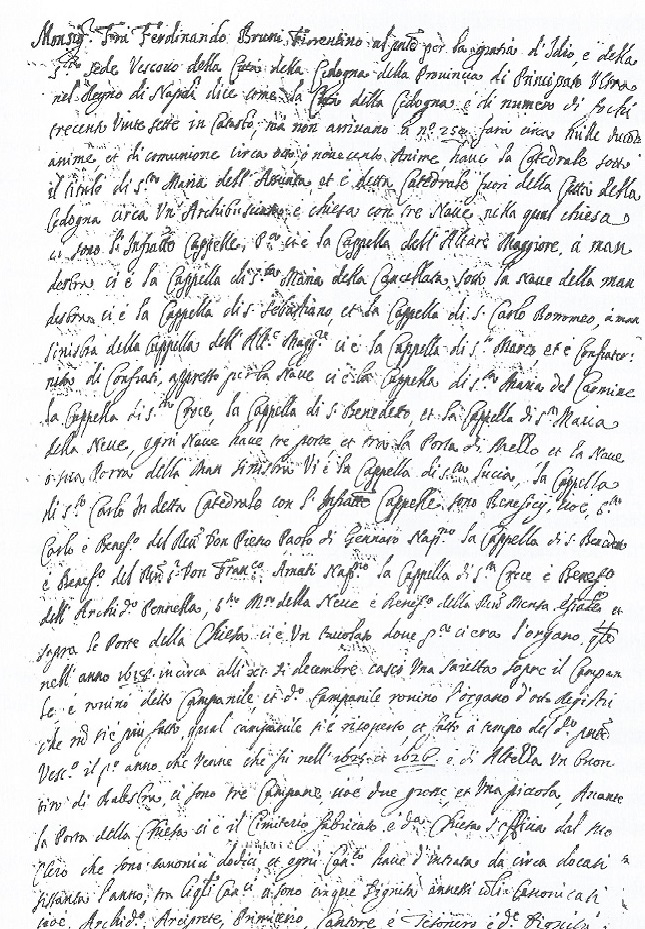 Monsig.r Frà Ferdinando Bruni Fiorentino al pnte per la gratia d'Idio, e della
S.ta Sede Vescovo della Città della Cedogna della Provincia di Principato Ultra
nel Regno di Napoli dice come la Città della Cedogna è di numero di fochi
trecento Vinte sette in Catasto, mà non arrivano à n.o 250 farà circa mille ducento
anime, et di comunione circa otto o novecento Anime, have la Catedrale sotto
il titulo di S.ta Maria dell'Assunta, et è detta Catedrale fuori della Città della
Cedogna circa Un Archibusciata, e chiesa con tre Nave, nella qual chiesa
ci sono l'Infratte Cappelle, P.a ci è la Cappella dell'Altare Maggiore, à man
destra ci è la Cappella di S.ta Maria della Cancellata, sotto la Nave della man
destra, ci è la Cappella di S. Sebastiano, et la Cappella di S. Carlo Borromeo, à man
sinistra della Cappella dell'Alt.e Magg.re ci è la Cappella di S. Marco et è Confrater-
nita di Confrati, appresso per la Nave ci è la Cappella di S.ta Maria del Carmine
la Cappella di S.ta Croce, la Cappella di S. Benedetto, et la Cappella di S.ta Maria
della Neve, ogni Nave have tre porte et tra la Porta di Mello et la Nave
Porta della man sinistra Vi è la Cappella di S.ta Lucia, la Cappella
di S.to Carlo In detta Catedrale con l'Infratte Cappelle sono Beneficij, cioè, S.to
Carlo è Benef.o del Rev. Don Pietro Paolo di Gennaro Nap.no la Cappella di S. Benedetto
è Benef.o del Rev. S.r Don Fran.co Amati Nap.no la Cappella di S.ta Croce è Benef.o
dell'Archid.o Pennella, S.ta M.a della Neve è Benef.o della Rev. Mensa et
sopra le Porte della Chiesa ci è Un dove p.a ci era l'organo,
nell'anno in circa alli di decembre cascò Una saietta sopre il Campani-
le è roninò detto Campanile et d.o Campanile roninò l'organo d'otto Registri
che nò si è più fatto, qual campanile si è ricoperto et fatto à tempo del d.o pnte
Vesc.o il p.o anno che Venne che fù nell'1625 et 1626 è di Altezza Un buon
tiro di Balestra, ci sono tre Campane, cioè due grosse et Una piccola, Avante
la Porta della Chiesa ci è il Cimiterio fabricato è d.a Chiesa s'officia dal suo
Clero che sono canonici dodici et ogni Can.co have d'intrata da circa docati
sissanta l'anno, tra li Can.ci ci sono cinque Dignità annesse Canonicati
cioè, Archid.o, Arciprete, Primicerio, Cantore è Tesorero è d.e Dignità